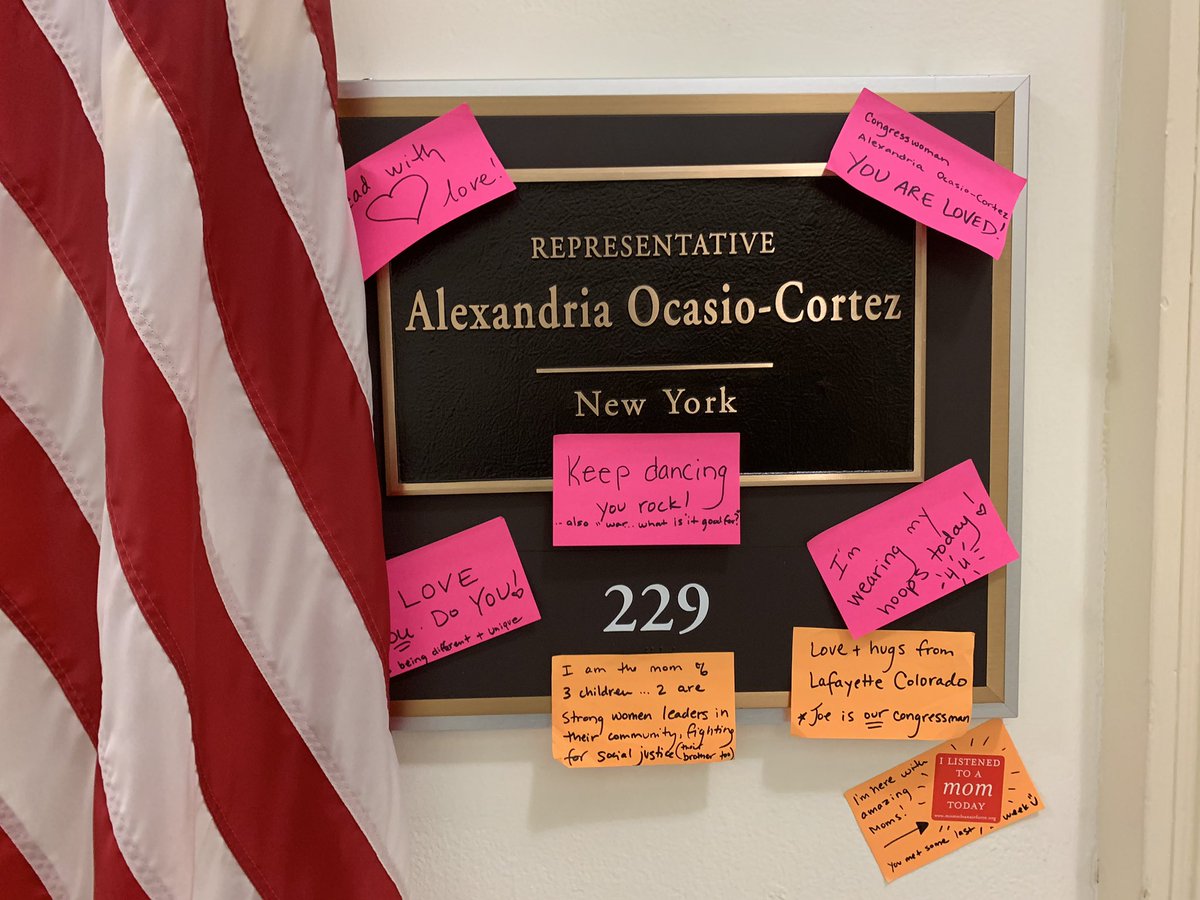 ad with
love!
Congresswoman
Alexandria Ocasio-Cortez
YOU ARE LOVED!
REPRESENTATIVE
Alexandria Ocasio-Cortez
New York
Keep dancing
you rock!
...also "war.. what is it goal for?
LOVE
ou. Do YOU!
being different + unique
I'm
wearing my
hoops today!
4 U
229
I am the mom of
3 children ... 2 are
strong women leaders in
their community, fighting
for social justice (their
brother too)
Love + hugs from
Lafayette Colorado
* Joe is our congressman
I'm here with
amazing
Moms!
You met some last week
I LISTENED
TO A
mom
TODAY
www.momscleanairforce.org